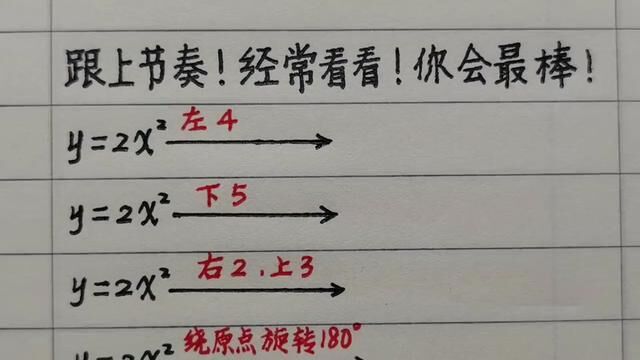 跟上节奏！经常看看！你会最棒！
y=2x² 左4
y=2x² 下5
y=2x² 右2．上3
y=2x² 绕原点旋转180°